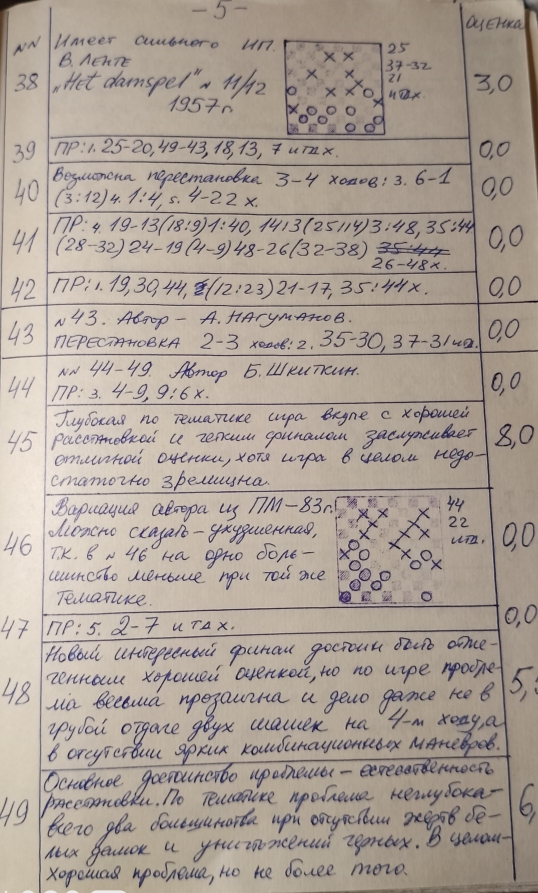 – 5 –
NN
ОЦЕНКА
38
Имеет сильного ИП.
В. Ленте
„Het damspel" N 11/12
1957г.
25
37-32
21
и т.д.х.
3,0
39
ПР: 1. 25-20, 49-43, 18, 13, 7 и т.д х.
0,0
40
Возможна перестановка 3-4 ходов: 3. 6-1
(3:12) 4. 1:4, 5. 4-22 х.
0,0
41
ПР: 4. 19-13 (18:9) 1:40, 14:3 (25:14) 3:48, 35:44
(28-32) 24-19 (4-9) 48-26 (32-38) 35:44
26-48х.
0,0
42
ПР: 1. 19, 30, 44, (12:23) 21-17, 35:44х.
0,0
43
N 43. Автор – А. Нагуманов.
ПЕРЕСТАНОВКА 2-3 ходов: 2. 35-30, 37-31 итд.
0,0
44
NN 44-49. Автор Б. Шкиткин.
ПР: 3. 4-9, 9:6х.
0,0
45
Глубокая по тематике игра вкупе с хорошей
расстановкой и четким финалом заслуживает
отличной оценки, хотя игра в целом недо-
статочно зрелищна.
8,0
46
Вариация автора из ПМ-83г.
Можно сказать – ухудшенная,
т.к. в N 46 на одно боль-
шинство меньше при той же
тематике.
44
22
итд.
0,0
47
ПР: 5. 2-7 и т д х.
0,0
48
Новый интересный финал достоин быть отме-
ченным хорошей оценкой, но по игре пробле-
ма весьма прозаична и дело даже не в
грубой отдаче двух шашек на 4-м ходу, а
в отсутствии ярких комбинационных маневров.
5,
49
Основное достоинство проблемы – естественность
расстановки. По тематике проблема неглубока-
всего два большинства при отсутствии жертв бе-
лых дамок и уничтожений черных. В целом-
хорошая проблема, но не более того.
6,